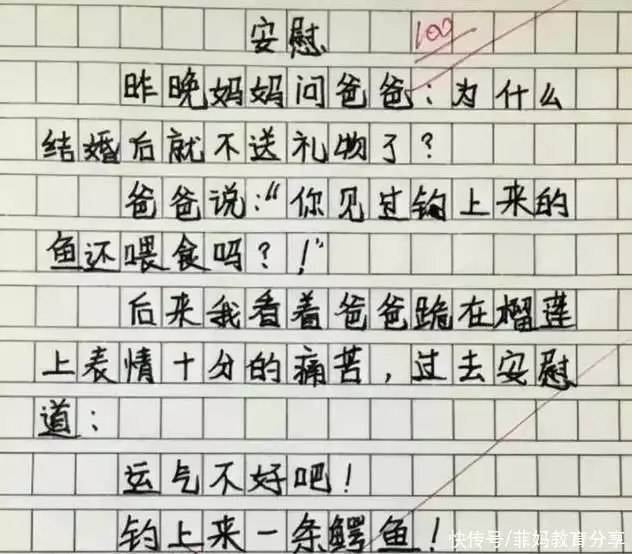 安慰 100
昨晚妈妈问爸爸:为什么
结婚后就不送礼物了?
爸爸说:“你见过钩上来的
鱼还喂食吗?!”
后来我看着爸爸跪在榴莲
上表情十分的痛苦,过去安慰
道:
运气不好吧!
钓上来一条鳄鱼!
快传号/菲妈教育分享